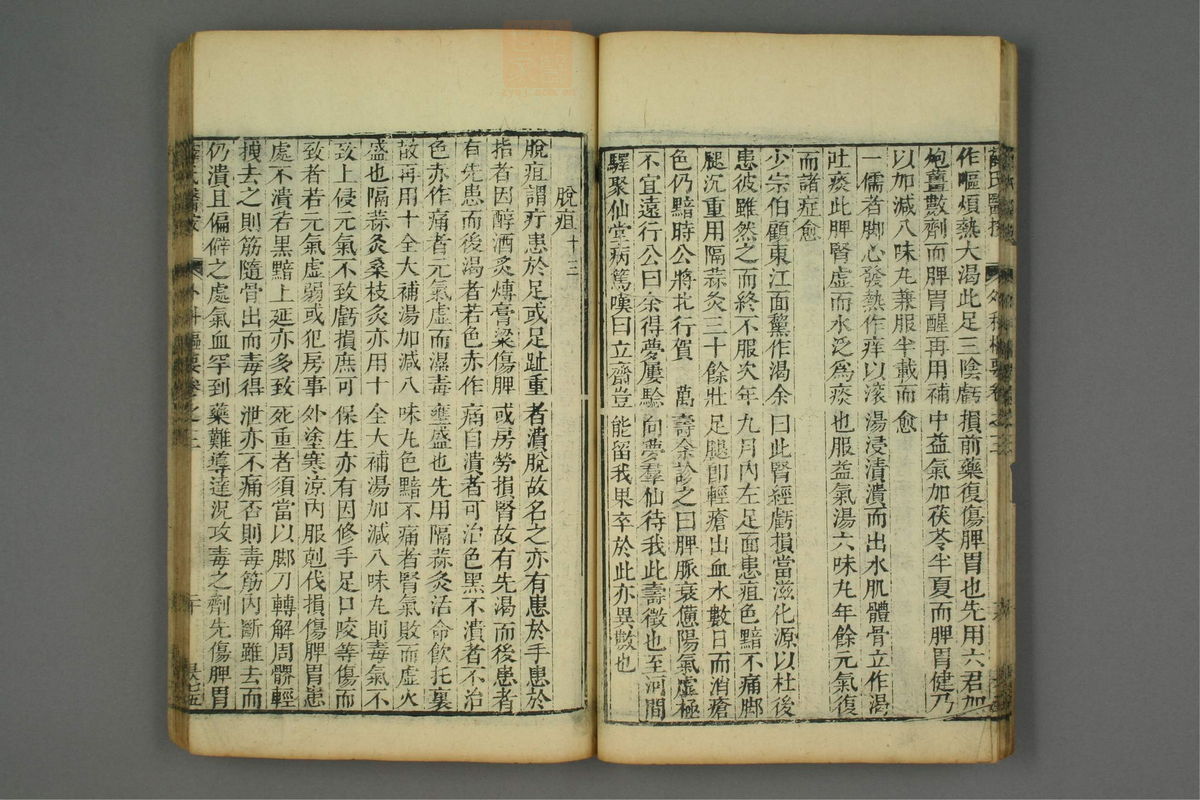 作嘔煩熱大渴此足三陰虧損前藥復傷脾胃也先用六君加
炮薑數劑而脾胃醒再用補中益氣加茯苓半夏而脾胃健乃
以加減八味丸兼服半載而愈
一儒者脚心發熱作痒以滚湯浸漬潰而出水肌體骨立作渴
吐痰此脾腎虛而水泛為痰也服益氣湯六味丸年餘元氣復
而諸症愈
少宗伯顧東江面黧作渴余曰此腎經虧損當滋化源以杜後
患彼雖然之而終不服次年九月內左足面患疽色黯不痛脚
腿沉重用隔蒜灸三十餘壯足腿卽輕瘡出血水數日而消瘡
色仍黯時公將北行賀 萬壽余診之曰脾脉衰憊陽氣虛極
不宜遠行公曰余得夢屢驗向夢羣仙待我此壽徵也至河間
驛聚仙堂病篤嘆曰立齋豈能留我果卒於此亦異數也
脫疽十三
脫疽謂疔患於足或足趾重者潰脫故名之亦有患於手患於
指者因醇酒炙煿膏粱傷脾或房勞損腎故有先渴而後患者
有先患而後渴者若色赤作痛自潰者可治色黑不潰者不治
色赤作痛者元氣虛而濕毒壅盛也先用隔蒜灸活命飲托裏
散再用十全大補湯加減八味丸色黯不痛者腎氣敗而虛火
盛也隔蒜灸桑枝灸亦用十全大補湯加減八味丸則毒氣不
致上侵元氣不致虧損庶可保生亦有因修手足口咬等傷而
致者若元氣虛弱或犯房事外塗寒涼內服剋伐損傷脾胃患
處不潰若黑黯上延亦多致死重者須當以脚刀轉解周髎輕
拽去之則筋隨骨出而毒得泄亦不痛否則毒筋內斷雖去而
仍潰且偏僻之處氣血罕到藥難導達況攻毒之劑先傷脾胃
外科樞要卷之三